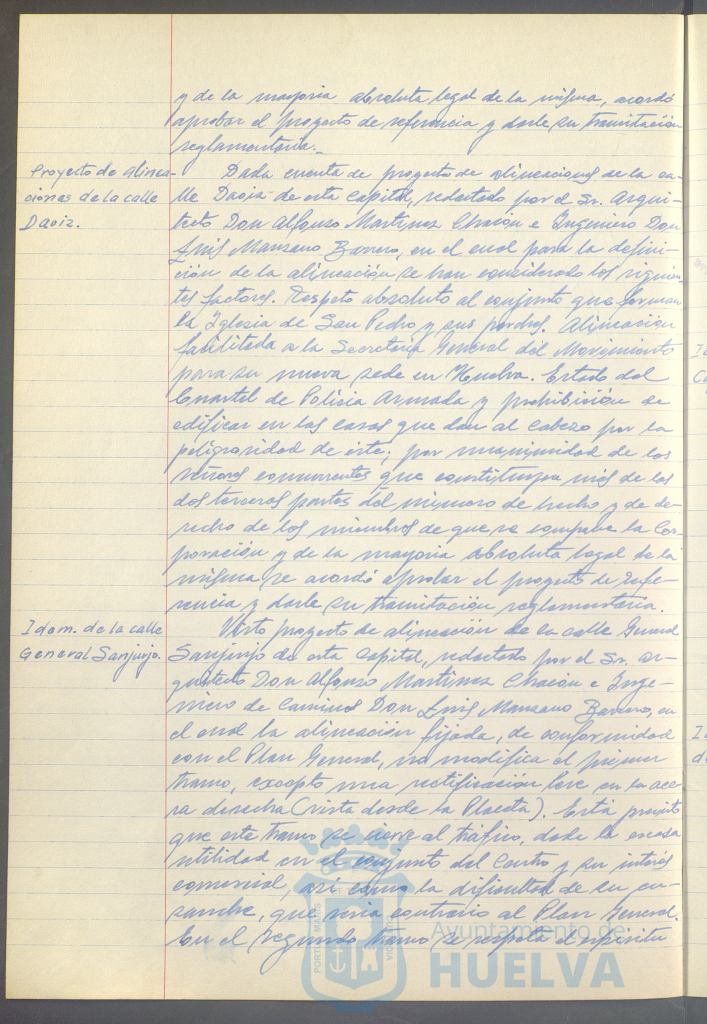 y de la mayoria absoluta legal de la misma, acordó
aprobar el proyecto de referencia y darle su tramitación
reglamentaria.-
Proyecto de alinea-
ciones de la calle
Daoiz.
Dada cuenta de proyecto de alineaciones de la ca-
lle Daoiz de esta Capital, redactado por el Sr. Arqui-
tecto Don Alfonso Martinez Chacón e Ingeniero Don
Luis Manzano Barrero, en el cual para la defini-
ción de la alineación se han considerado los siguien-
tes factores. Respeto absoluto al conjunto que forman
la Iglesia de San Pedro y sus Alineación
facilitada a la Secretaria General del Movimiento
para su nueva sede en Huelva. Estado del
Cuartel de Policia Armada y prohibición de
edificar en las casas que dan al Cabezo por la
peligrosidad de éste; por unanimidad de los
señores concurrentes que constituyen más de las
dos terceras partes del número de hecho y de de-
recho de los miembros de que se compone la Cor-
poración y de la mayoria absoluta legal de la
misma se acordó aprobar el proyecto de refe-
rencia y darle su tramitación reglamentaria.
Idem. de la calle
General Sanjurjo.
Visto proyecto de alineación de la calle General
Sanjurjo de esta Capital, redactado por el Sr. Ar-
quitecto Don Alfonso Martinez Chacón e Inge-
niero de Caminos Don Luis Manzano Barrero, en
el cual la alineación fijada, de conformidad
con el Plan General, no modifica el primer
tramo, excepto una rectificación leve en la ace-
ra derecha (vista desde la Placeta). Está previsto
que este tramo se cierre al tráfico, dada la escasa
utilidad en el conjunto del Centro y su interés
comercial, asi como la dificultad de su en-
sanche, que seria contrario al Plan General.
En el segundo tramo se respeta el espiritu
Ayuntamiento de
HUELVA